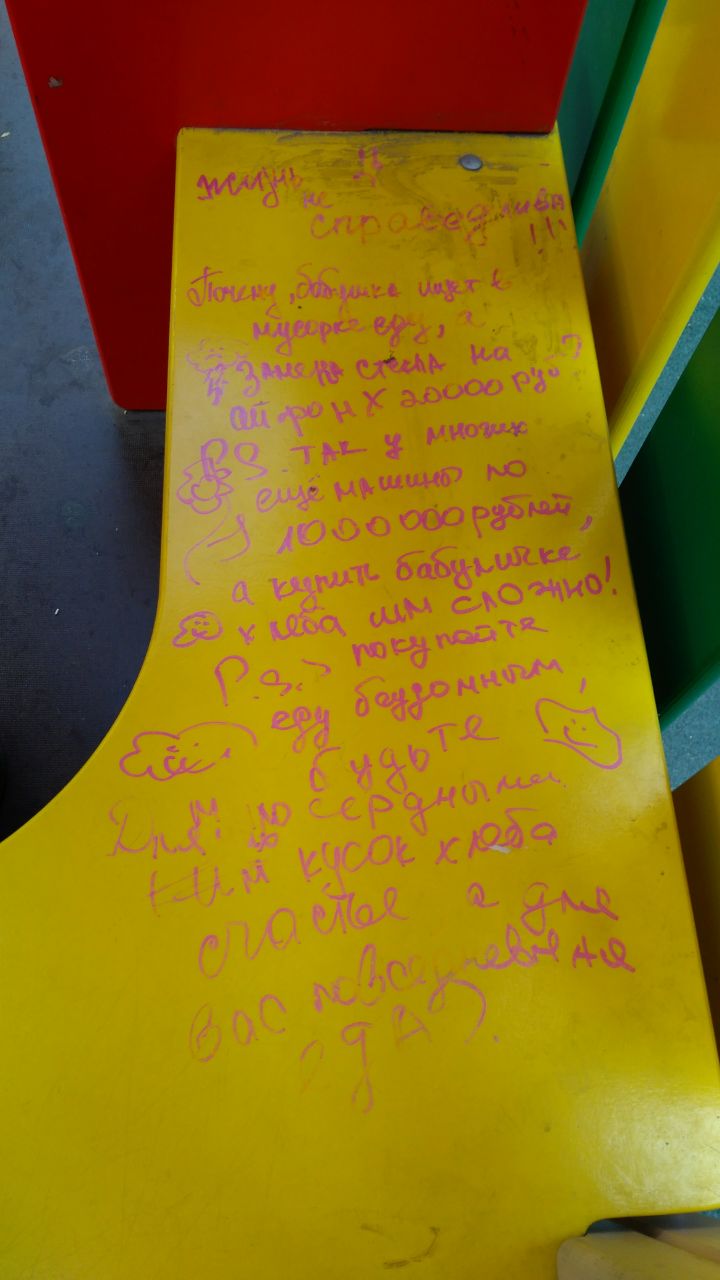 жизнь
не
справедлива
!!!
Почему, бабушка ищет в
мусорке еду, а
замена стекла на
айфон X 20000 руб?
PS так у многих
еще машины по
1000000 рублей,
а купить бабуличке
хлеба им сложно!
P.S. покупайте
еду бездомным,
будьте
сердными
Для
Им кусок хлеба
счастье а для
вас повседневная
еда